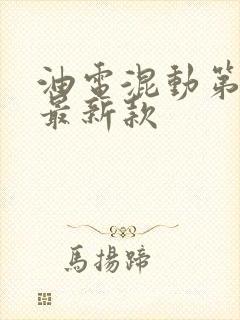 油電混動第
最新款
馬揚蹄